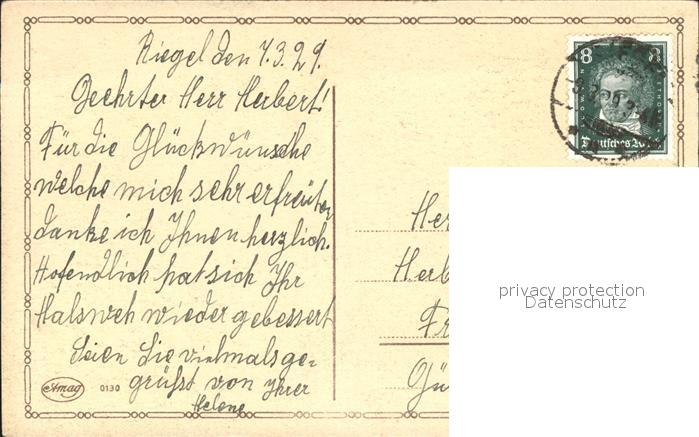 Riegel den 7.3.29.
Geehrter Herr Herbert!
Für die Glückwünsche
welche mich sehr erfreuten
danke ich Ihnen herzlich.
Hofendlich hat sich Ihr
Halsweh wieder gebessert
Seien Sie vielmals ge-
grüßt von Ihrer
Helene
Amag 0130
8 8
Deutsches Reich
Her
Herb
Fr
Gü
privacy protection
Datenschutz